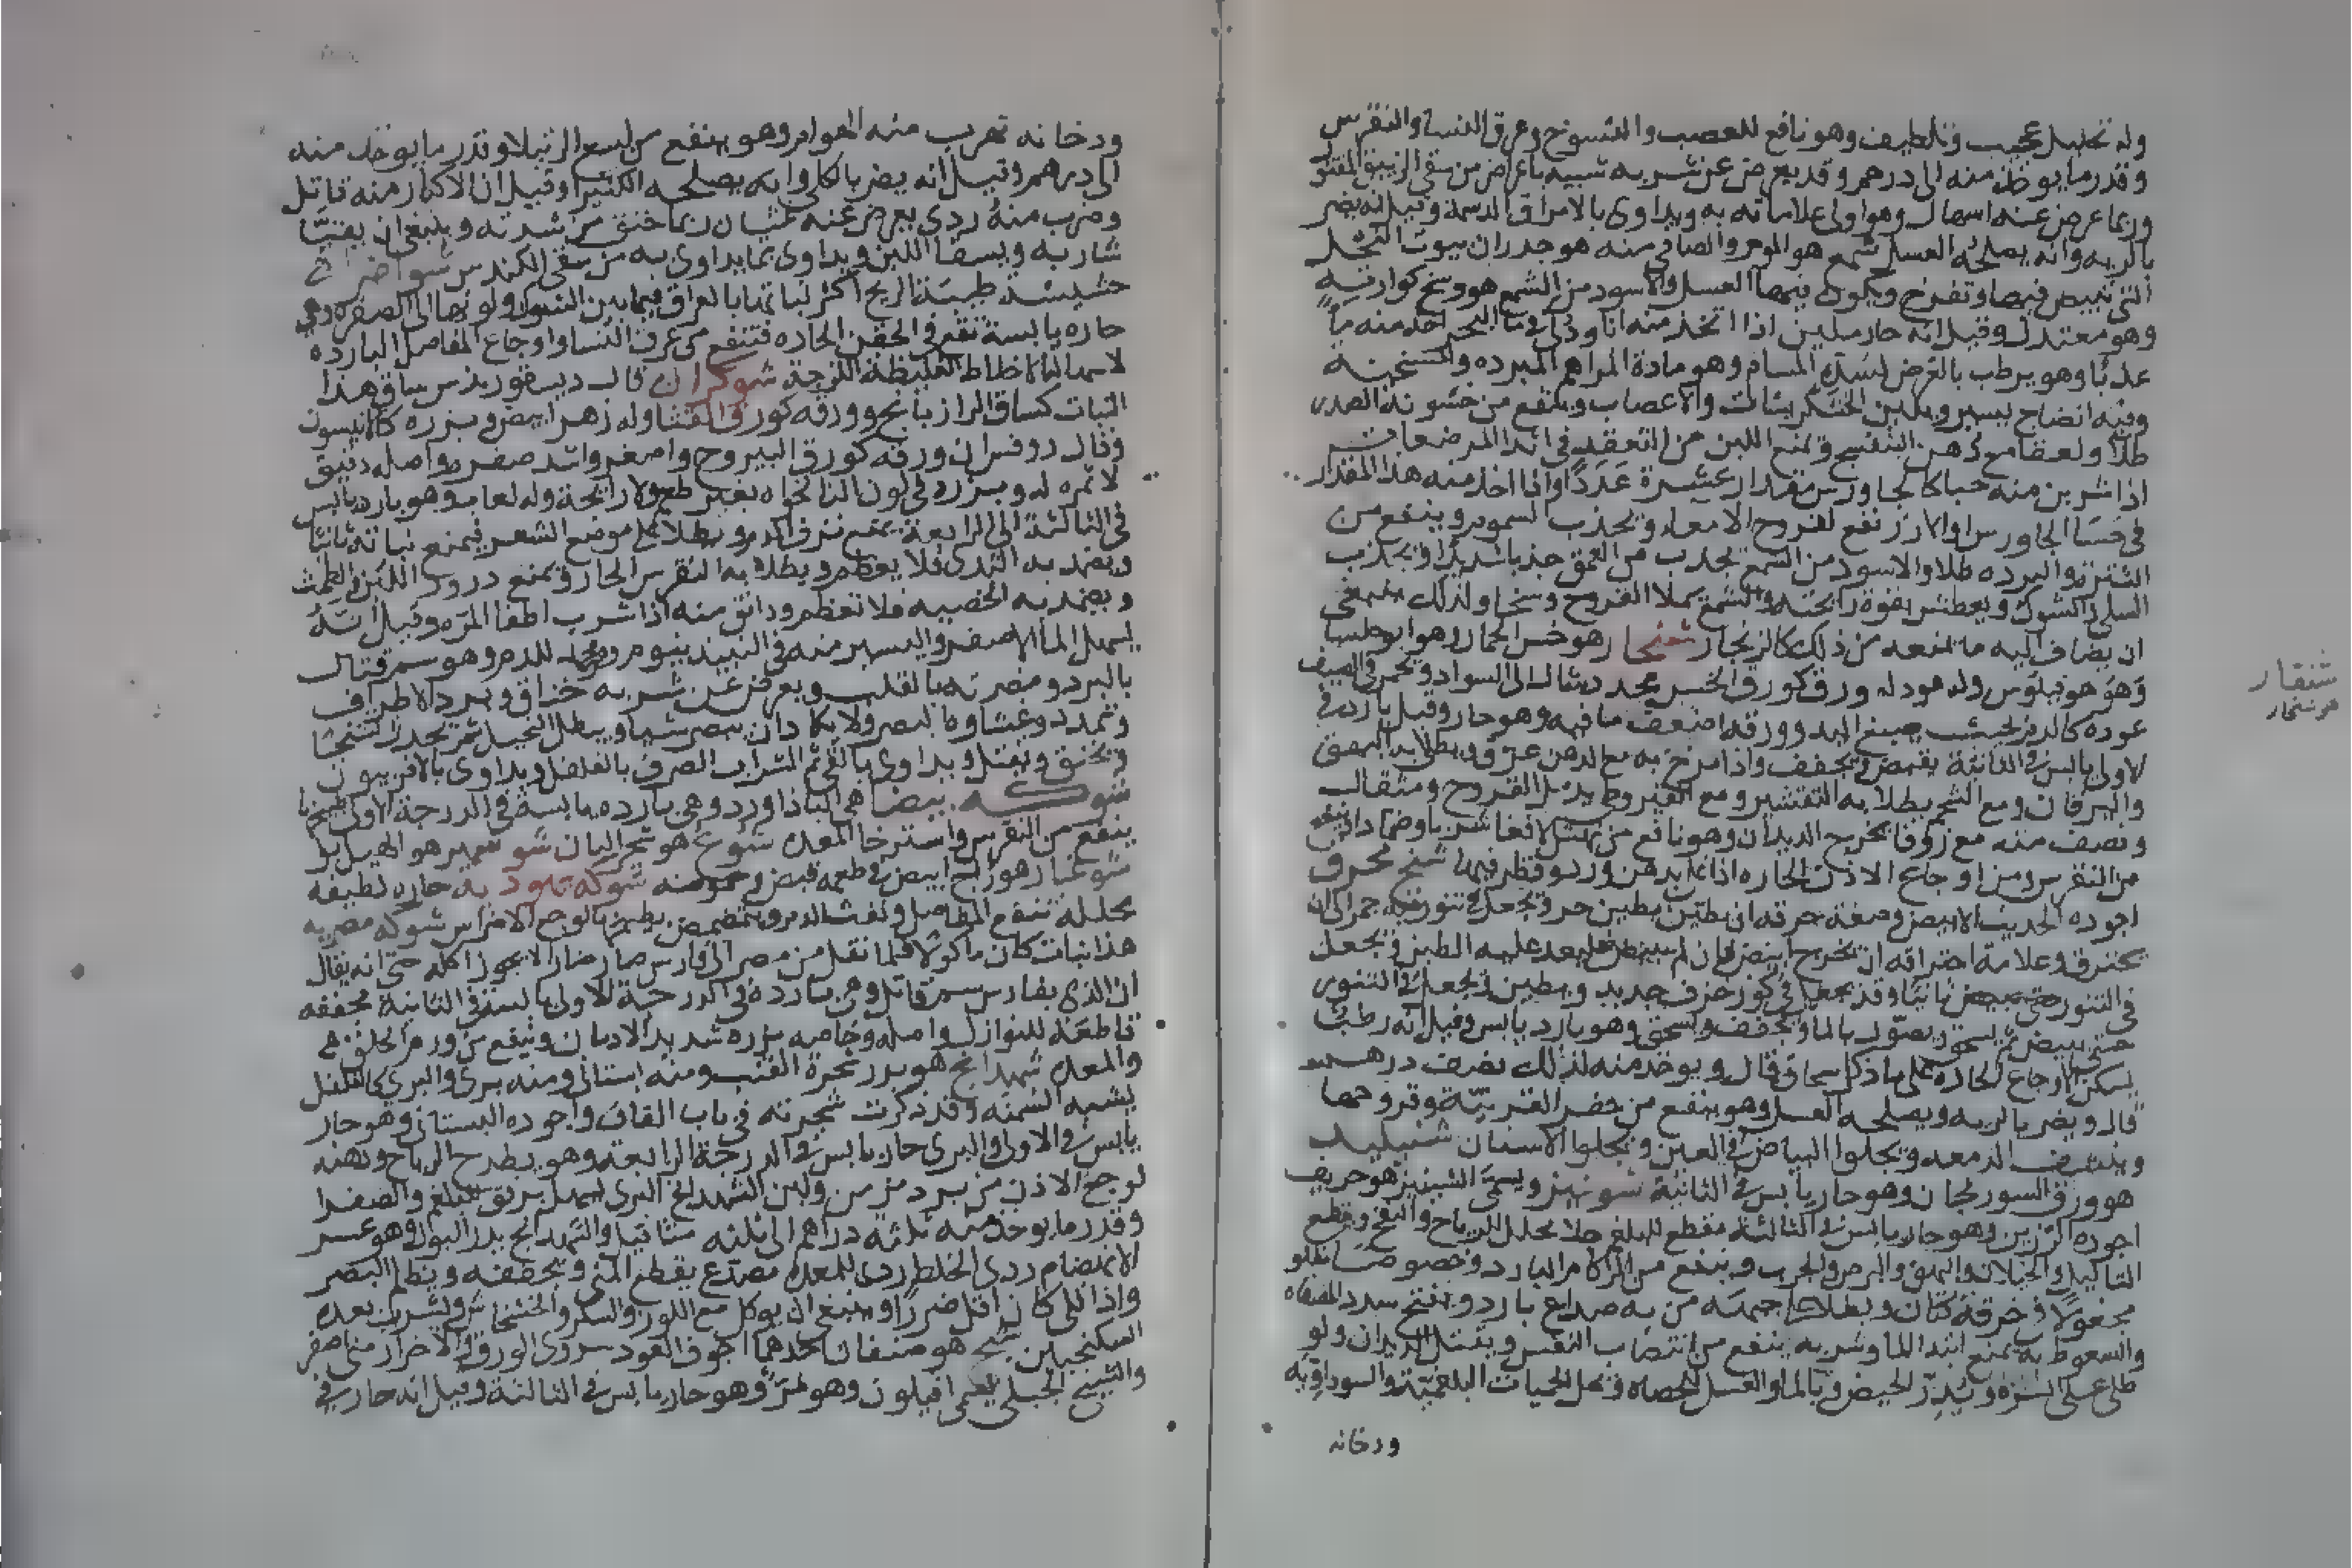 وله تحليل عجيب وتلطيف وهو نافع للعصب والتشنج وعرق النسا والنقرس
وقدر ما يوخذ منه الى درهم وقد يعرض عن شربه شبيه باعراض من سقى الزيبق المقتول
وربما عرض عنه اسهال وهو اولى علاماته به ويداوى بالامراق الدسمة وقيل انه يضر
بالريه وانه يصلحه العسل شمع هو الموم والصافي منه هو جدران بيوت النحل
التي تبيض فيها وتفرخ ويكون فيها العسل والاسود من الشمع هو وسخ كوارته
وهو معتدل وقيل انه حار ملين اذا اتخذ منه انا ودلي في ما البحر اخذ منه ما
عذبا وهو يرطب بالعرض لسده المسام وهو مادة المراهم المبرده والمسخنة
وفيه انضاج يسير ويلين الخشكريشات والاعصاب وينفع من خشونة الصدر
طلا ولعقا مع دهن البنفسج ويمنع اللبن من التعقد في اثدا المرضعات
اذا شربن منه حبا كالجاورس مقدار عشرة عددا واذا اخذ منه هذا المقدار
في حسا الجاورس او الارز نفع لقروح الامعاء ويجذب السموم وينفع من
طلا والاسود من الشمع يجذب من العمق جذبا شديدا ويجذب
السلى والشوك ويعطش بقوة رائحته والشمع يملا القروح وسخا ولذلك ينبغي
ان يضاف اليه ما يمنعه من ذلك كالزنجار شنجار هو خس الحمار وهو ابو حلسا
وهو هو فيلوس وله ورق كورق الخس محدد مثاله الى السواد ويحمر في الصيف
عوده كالدم بحيث يصبغ اليد وورقه اضعف ما فيه وهو حار وقيل بارد في
الاولى يابس في الثانية يقبض ويجفف واذا مرخ به مع الدهن عرق ويطلا به البهق
واليرقان ومع الشحم يطلا به التقشير ومع القيروطي يدمل القروح ومثقال
ونصف منه مع زوفا يخرج الديدان وهو نافع من نهش الافعا شربا وضمادا وينفع
من النقرس ومن اوجاع الاذن الحاره اذا غلى بدهن ورد وقطر فيها شنج محرق
اجوده الحديث الابيض وصفة حرقه ان يطين بطين حر ويجعل في تنور فيه جمر الى ان
يحترق وعلامة احتراقه ان يخرج ابيض فان لم يبيض فليعد عليه الطين ويجعل
في التنور حتى يبيض ثانيا وقد يجعل في كوز خزف جديد ويطين ويجعل في التنور
حتى يبيض ثم يسحق ويصول بالما ويجفف ويسحق وهو بارد يابس وقيل انه رطب
يسكن الاوجاع الحاره على ما ذكر اسحاق قال ويوخذ منه لذلك نصف درهم
قال ويضر بالريه ويصلحه العسل وهو ينفع من حفر القرنية وقروحها
وينشف الدمعه ويجلوا البياض في العين ويجلوا الاسنان شنبليد
هو ورق السورنجان وهو حار يابس في الثانية شونيز ويسمى الشينيز هو حريف
اجوده الرزين وهو حار يابس في الثالثة مقطع للبلغم جلا يحلل للرياح والنفخ ويقطع
الثآليل والخيلان والبهق والبرص والجرب وينفع من الزكام البارد وخصوصا مقلو
مجعولا في خرقة كتان ويطلا جبهته من به صداع بارد ويفتح سدد المصفاه
والسعوط به يمنع ابتدا الما وشربه ينفع من انتصاب النفس ويقتل الديدان ولو
طلى على السره ويدر الحيض وبالما والعسل للحصاه ويحل الحميات البلغمية والسوداويه
ودخانه
شنقار
هو شنجار
ودخانه تهرب منه الهوام وهو ينفع من لسع الرتيلا وقدر ما يوخذ منه
الى درهم وقيل انه يضر بالكلى وانه يصلحه الكثيرا وقيل ان الاكثار منه قاتل
وضرب منه ردى يعرض عنه غثيان ربما خنق من شدته وينبغي ان يقيا
شاربه ويسقا اللبن ويداوى بما يداوى به من سقى الكندس شواصرا
حشيشة طيبة الريح اكثر نباتها بالعراق فيما بين الشوك ولونها الى الصفره وهي
حاره يابسة تقع في الحقن الحاره فتنفع من عرق النسا واوجاع المفاصل البارده
لاسهالها الاخلاط الغليظة اللزجة شوكران قال ديسقوريذس ساق هذا
النبات كساق الرازيانج وورقه كورق القثا وله زهر ابيض وبزره كالانيسون
وقال روفس ان ورقه كورق اليبروح واصغر واشد صفره واصله دقيق
لا ثمره له وبزره في لون النانخواه بغير طعم ولا رائحة وله لعاب وهو بارد يابس
في الثالثة الى الرابعة يمنع نزف الدم ويطلا على موضع الشعر فيمنع نباته ثانيا
ويضمد به الثدى فلا يعظم ويطلا به النقرس الحار ويمنع درور اللبن والطمث
ويضمد به الخصيه فلا تعظم ودانق منه اذا شرب اطفا المره وقيل انه
يسهل الما الاصفر واليسير منه في النبيذ ينوم ويجمد للدم وهو سم قتال
بالبرد ومضرته بالقلب ويعرض عن شربه خناق وبرد الاطراف
وتمدد وغشاوة البصر ولا يكاد ان يبصر شيا ويبطل التخيل ثم يحدث تشنجا
ويخنق ويقتل ويداوى بالقي ثم الشراب الصرف بالفلفل ويداوى بالافربيون
شوكه بيضا هي الباذاورد وهي بارده يابسة في الدرجة الاولى طبيخها
ينفع من النقرس واسترخا المعده شوع هو شجر البان شوشمير هو الهيل بوا
شوغار هو زاج ابيض في طعمه قبض وحموضه شوكه يهوديه حاره لطيفه
محلله تنفع المفاصل ونفث الدم ويتمضمض بطبيخها لوجع الاضراس شوكه مصريه
هذا نبات كان ماكولا فلما نقل من مصر الى فارس صار ضارا لا يجوز اكله حتى انه يقال
ان الذي بفارس سم قاتل وهي بارده في الدرجة الاولى يابسة في الثانية مجففه
قاطعة للنوازل واصله وخاصه بزره شديد الادمان وينفع من ورم الحلق
والمعده شهدانج هو بزر شجرة القنب ومنه بستاني ومنه برى والبرى كالفلفل
يشبه السمنه وقد ذكرت شجرته في باب القاف واجوده البستاني وهو حار
يابس في الاولى والبرى حار يابس في الدرجة الرابعة وهو يطرح الرياح ودهنه
لوجع الاذن من برد مزمن ولبن الشهدانج البرى يسهل برفق البلغم والصفرا
وقدر ما يوخذ منه ثلثة دراهم الى ثلثه مثاقيل والشهدانج يدر البول وهو عسر
الانهضام ردى الخلط ردى للمعده مصدع يقطع المنى ويجففه ويظلم البصر
واذا قلى كان اقل ضررا وينبغي ان يوكل مع اللوز والسكر والخشخاش ويشرب بعده
السكنجبين شيح هو صنفان احدهما اجوف العود سروى الورق والاخر اصفر
والشيح الجبلي يسمى افيلون وهو مر وهو حار يابس في الثالثة وقيل انه حار في